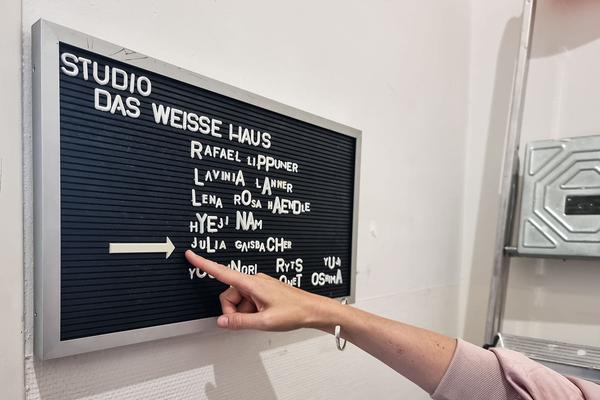 STUDIO
DAS WEISSE HAUS
RAFAEL LIPPUNER
LAVINIA LANNER
LENA ROSA HAENDLE
HYEJI NAM
JULIA GAISBACHER
RYTS YUJI
OSHIMA